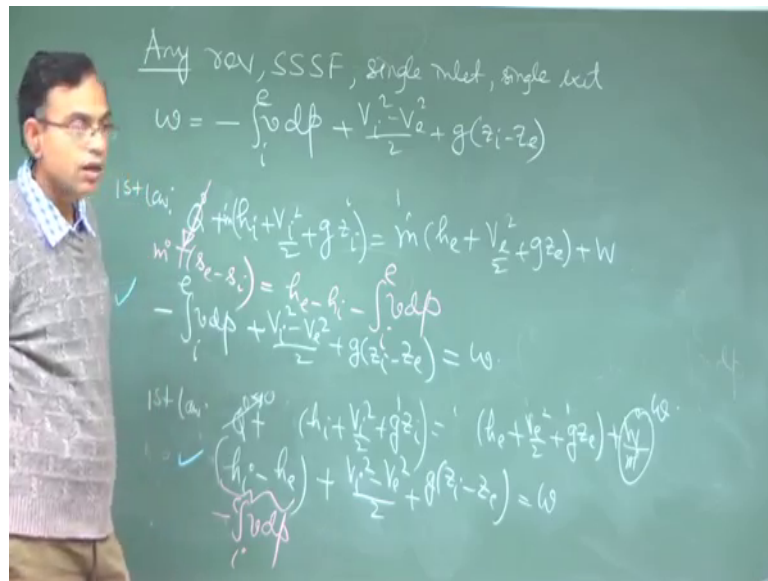 Any rev, SSSF, single inlet, single exit
w = - ∫ᵢᵉ v dp + (Vᵢ² - Vₑ²)/2 + g(zᵢ - zₑ)
1st law: Q̇ + ṁ(hᵢ + Vᵢ²/2 + gzᵢ) = ṁ(hₑ + Vₑ²/2 + gzₑ) + W
ṁ T(sₑ - sᵢ) = hₑ - hᵢ - ∫ᵢᵉ v dp
- ∫ᵢᵉ v dp + (Vᵢ² - Vₑ²)/2 + g(zᵢ - zₑ) = w.
1st law: Q + (hᵢ + Vᵢ²/2 + gzᵢ) = (hₑ + Vₑ²/2 + gzₑ) + W/ṁ w
(hᵢ - hₑ) + (Vᵢ² - Vₑ²)/2 + g(zᵢ - zₑ) = w
- ∫ᵢ v dp